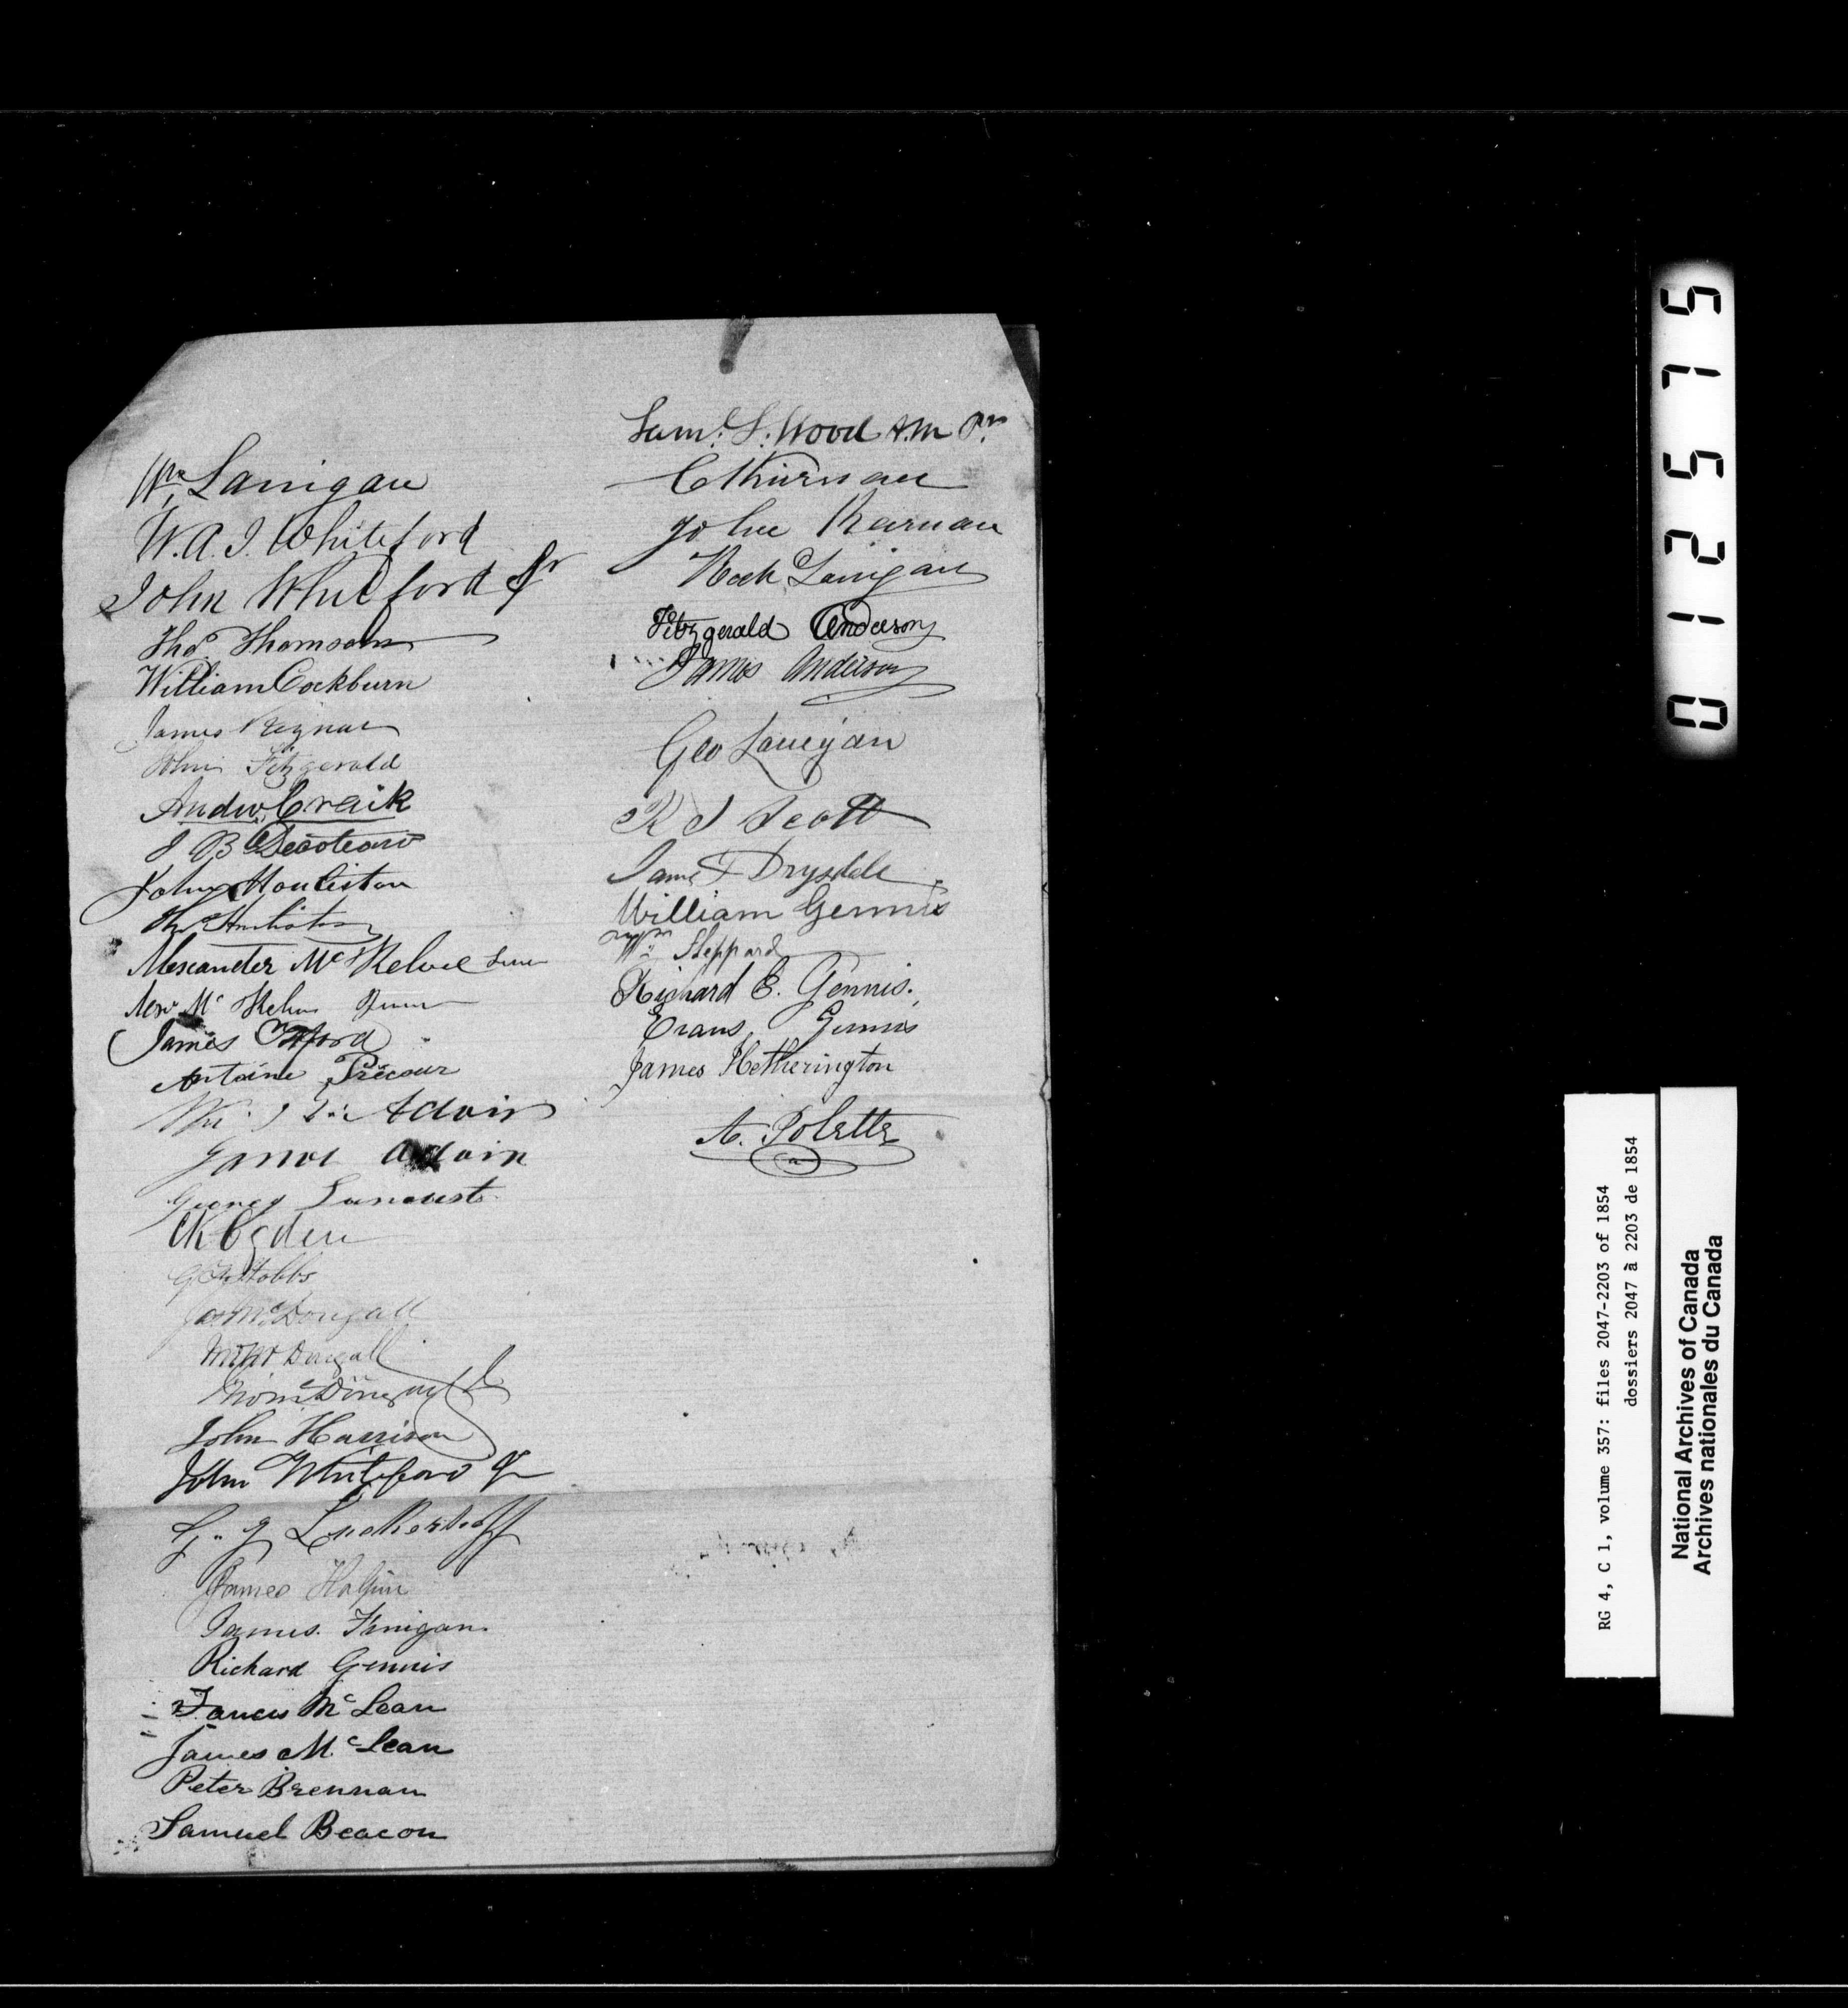 Wm Lanigan
W.A.J. Whiteford
John Whiteford Sr
Thos Thomson
William Cockburn
James
John Fitzgerald
Andw Craik
J B Decoteau
John Houliston
Alexander McKelvie
Alexr Mc
James
Antoine Précour
Adair
Adair
George Lanouist
CK Ogden
G Stobbs
Jas McDougall
McDougall
McDougall
John Harrison
John Whiteford Jr
G. J Luckerhoff
James Halpin
James Finigan
Richard Gennis
Francis McLean
James McLean
Peter Brennan
Samuel Beacon
Saml. S. Wood A.M.
C Kiernan
John Kiernan
Lanigan
Fitzgerald Anderson
James Anderson
Geo Lanigan
Scott
James F Drysdale
William Gennis
Wm Sheppard
Richard E. Gennis.
Evans Gennis
James Hetherington
A. Polette
012575
RG 4, C 1, volume 357: files 2047-2203 of 1854
dossiers 2047 à 2203 de 1854
National Archives of Canada
Archives nationales du Canada